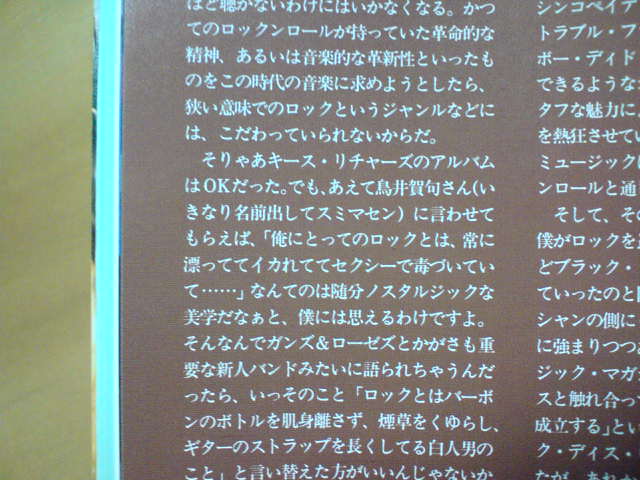 ほど聴かないわけにはいかなくなる。かつ
てのロックンロールが持っていた革命的な
精神、あるいは音楽的な革新性といったも
のをこの時代の音楽に求めようとしたら、
狭い意味でのロックというジャンルなどに
は、こだわっていられないからだ。
そりゃあキース・リチャーズのアルバム
はOKだった。でも、あえて鳥井賀句さん(い
きなり名前出してスミマセン)に言わせて
もらえば、「俺にとってのロックとは、常に
漂っててイカれててセクシーで毒づいてい
て……」なんてのは随分ノスタルジックな
美学だなぁと、僕には思えるわけですよ。
そんなんでガンズ&ローゼズとかがさも重
要な新人バンドみたいに語られちゃうんだ
ったら、いっそのこと「ロックとはバーボ
ンのボトルを肌身離さず、煙草をくゆらし、
ギターのストラップを長くしてる白人男の
こと」と言い替えた方がいいんじゃないか
シンコペイア
トラブル・フ
ボー・ディド
できるような
タフな魅力に
を熱狂させてい
ミュージック
ンロールと通
そして、その
僕がロックを
どブラック・
ていったのと
シャンの側に
に強まりつつあ
ジック・マガ
スと触れ合っ
成立する」とい
ク・ディス・
たが、あれか